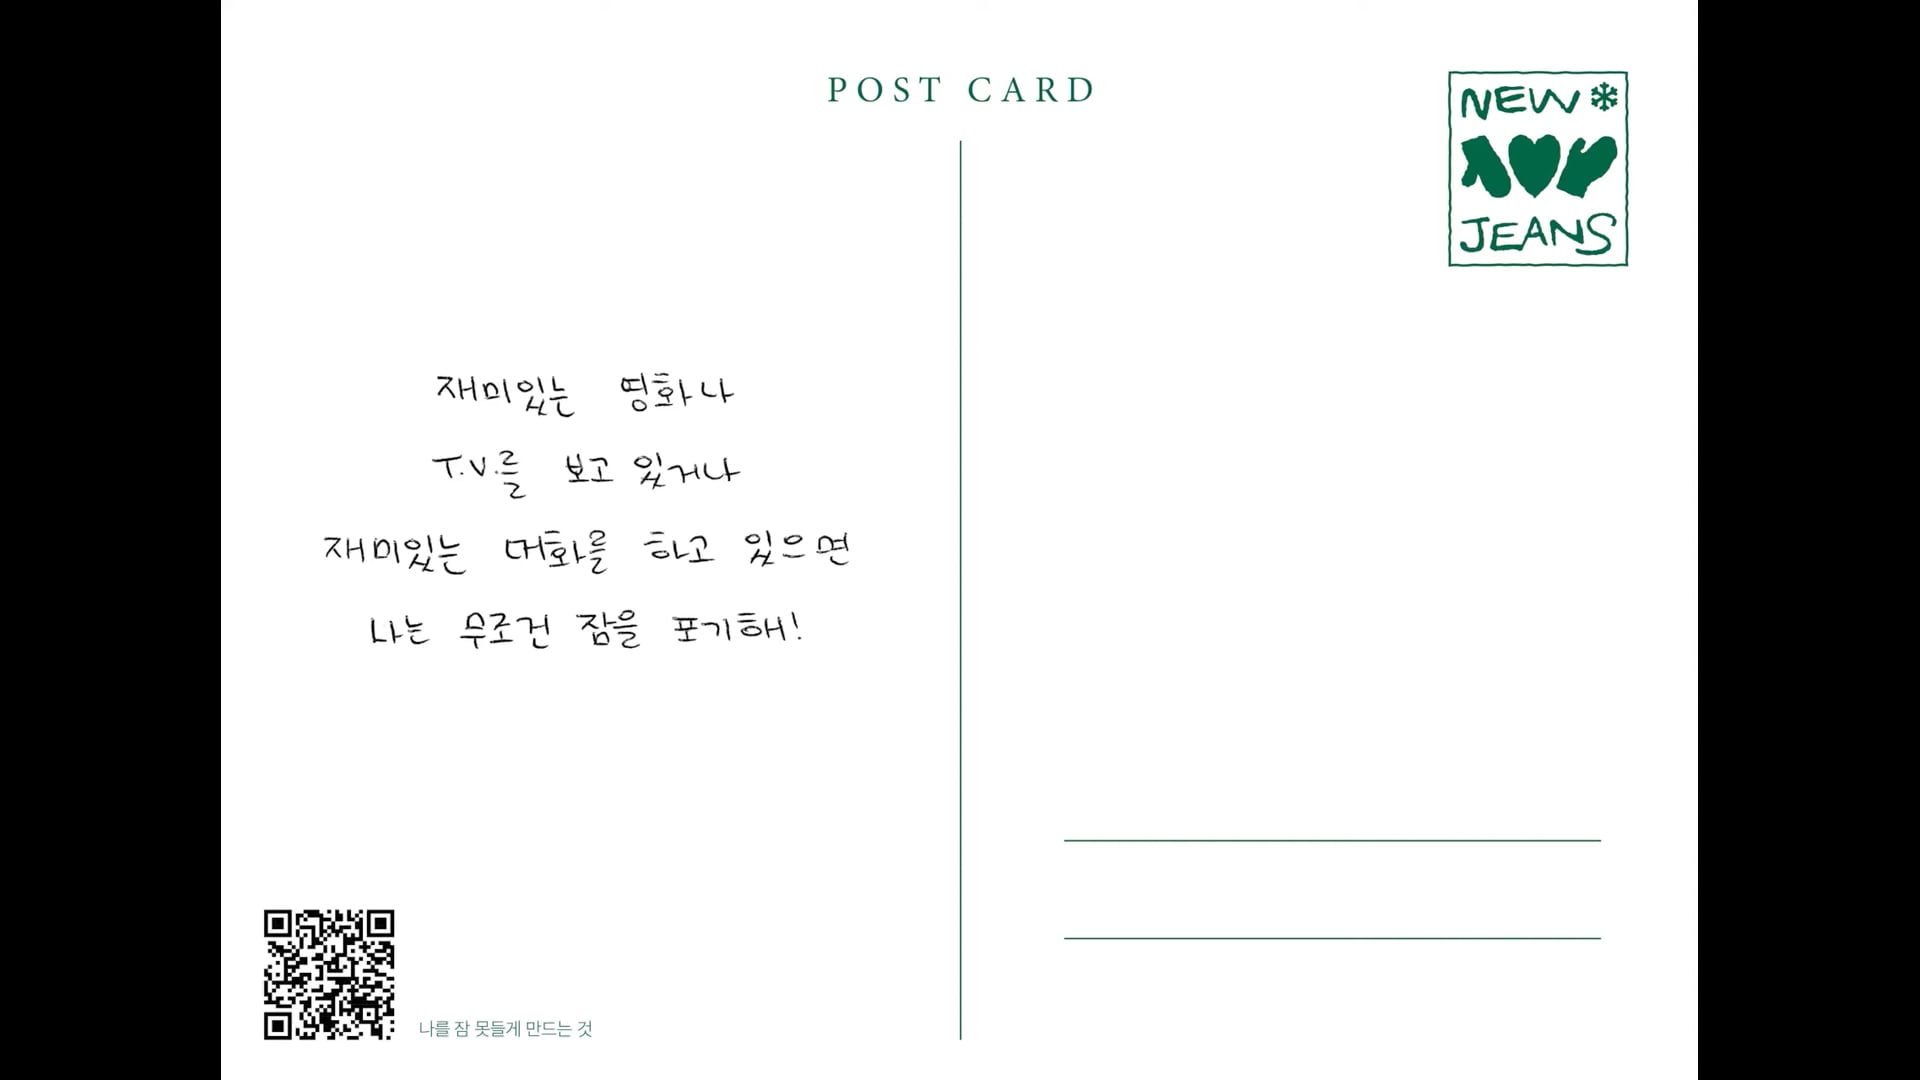 POST CARD
NEW
JEANS
재미있는 영화나
T.V.를 보고 있거나
재미있는 대화를 하고 있으면
나는 무조건 잠을 포기해!
나를 잠 못들게 만드는 것